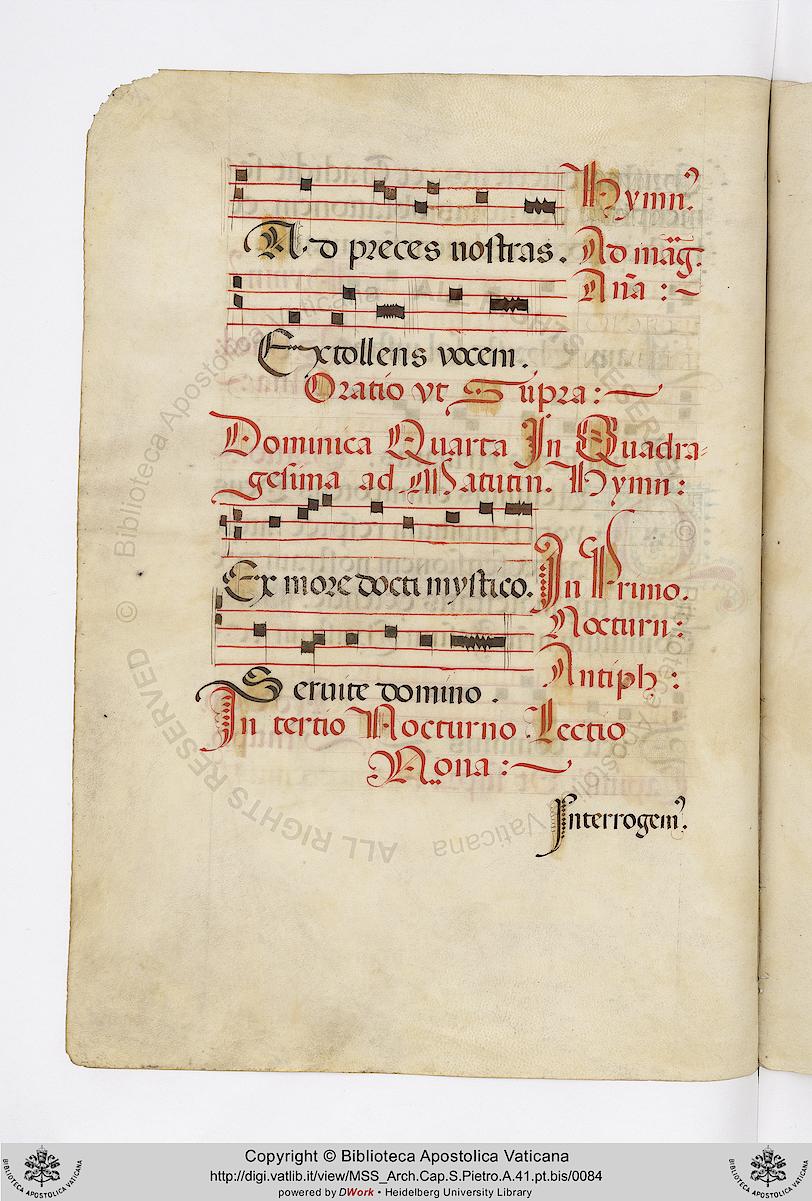 Hymn⁹.
A.d preces nostras. Ad mãg.
Añã :~
Extollens vocem.
Oratio vt Supra:~
Dominica Quarta In Quadra-
gesima ad Matutin. Hymn:
Ex more docti mystico. In Primo.
Nocturn:
Antiph:
Seruite domino.
In tertio Nocturno. Lectio
Nona:~
Interrogem⁹.
© Biblioteca Apostolica Vaticana ALL RIGHTS RESERVED
BIBLIOTECA APOSTOLICA VATICANA
Copyright © Biblioteca Apostolica Vaticana
http://digi.vatlib.it/view/MSS_Arch.Cap.S.Pietro.A.41.pt.bis/0084
powered by DWork • Heidelberg University Library
BIBLIOTECA APOSTOLICA VATICANA